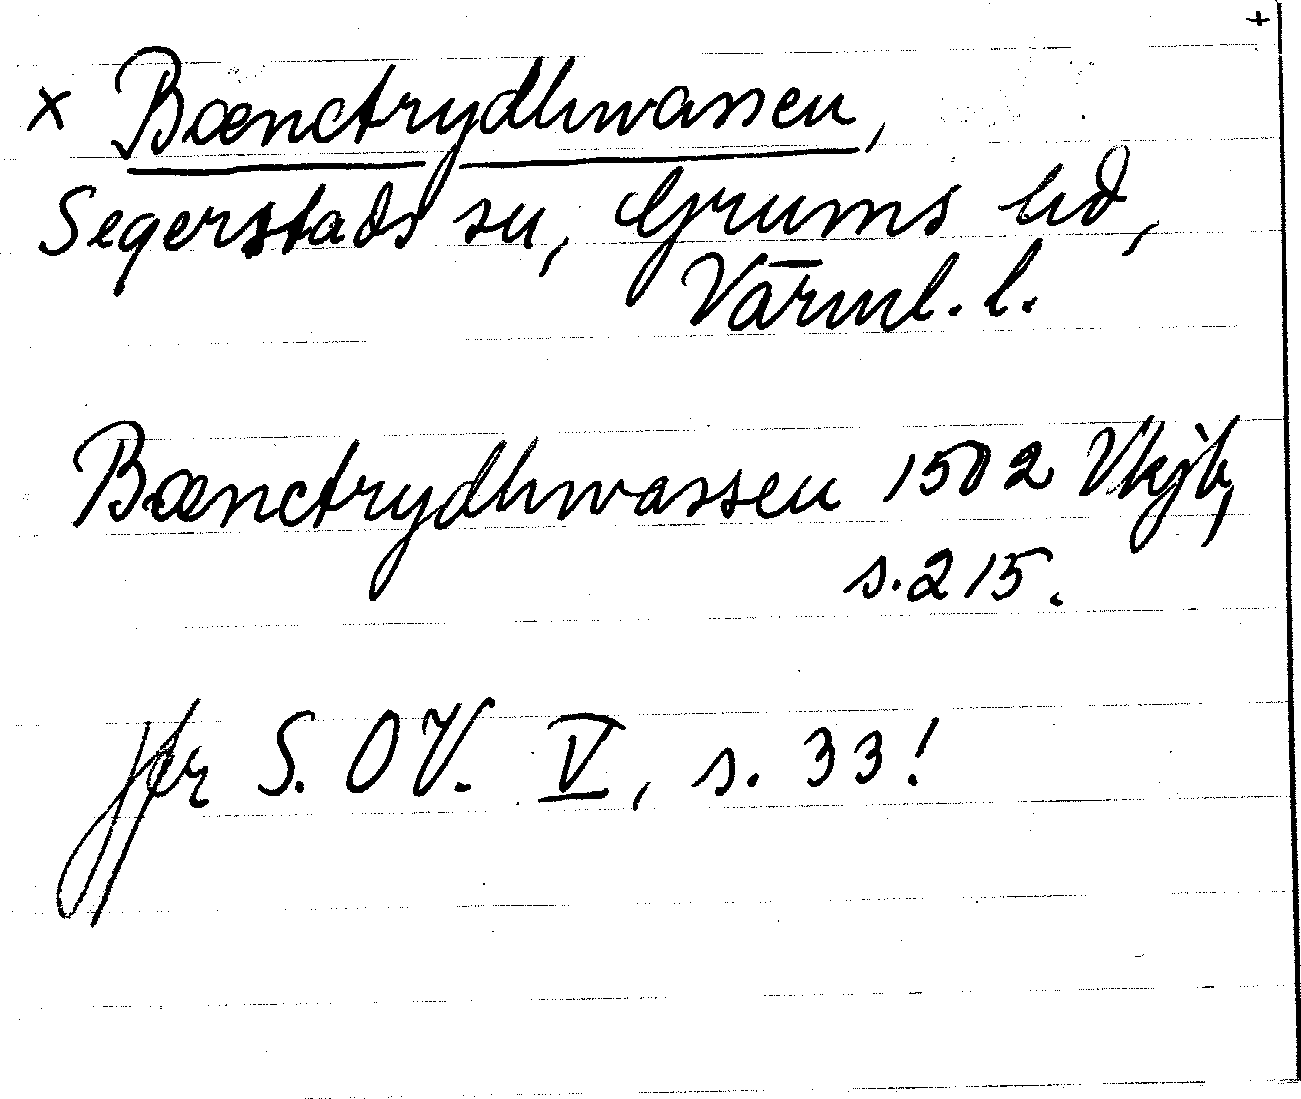 +
× Bænctrydhwassen,
Segerstads sn, Grums hd,
Värml. l.
Bænctrydhwassen 1502 Vkjb,
s. 215.
Jfr S. OV. V, s. 33!